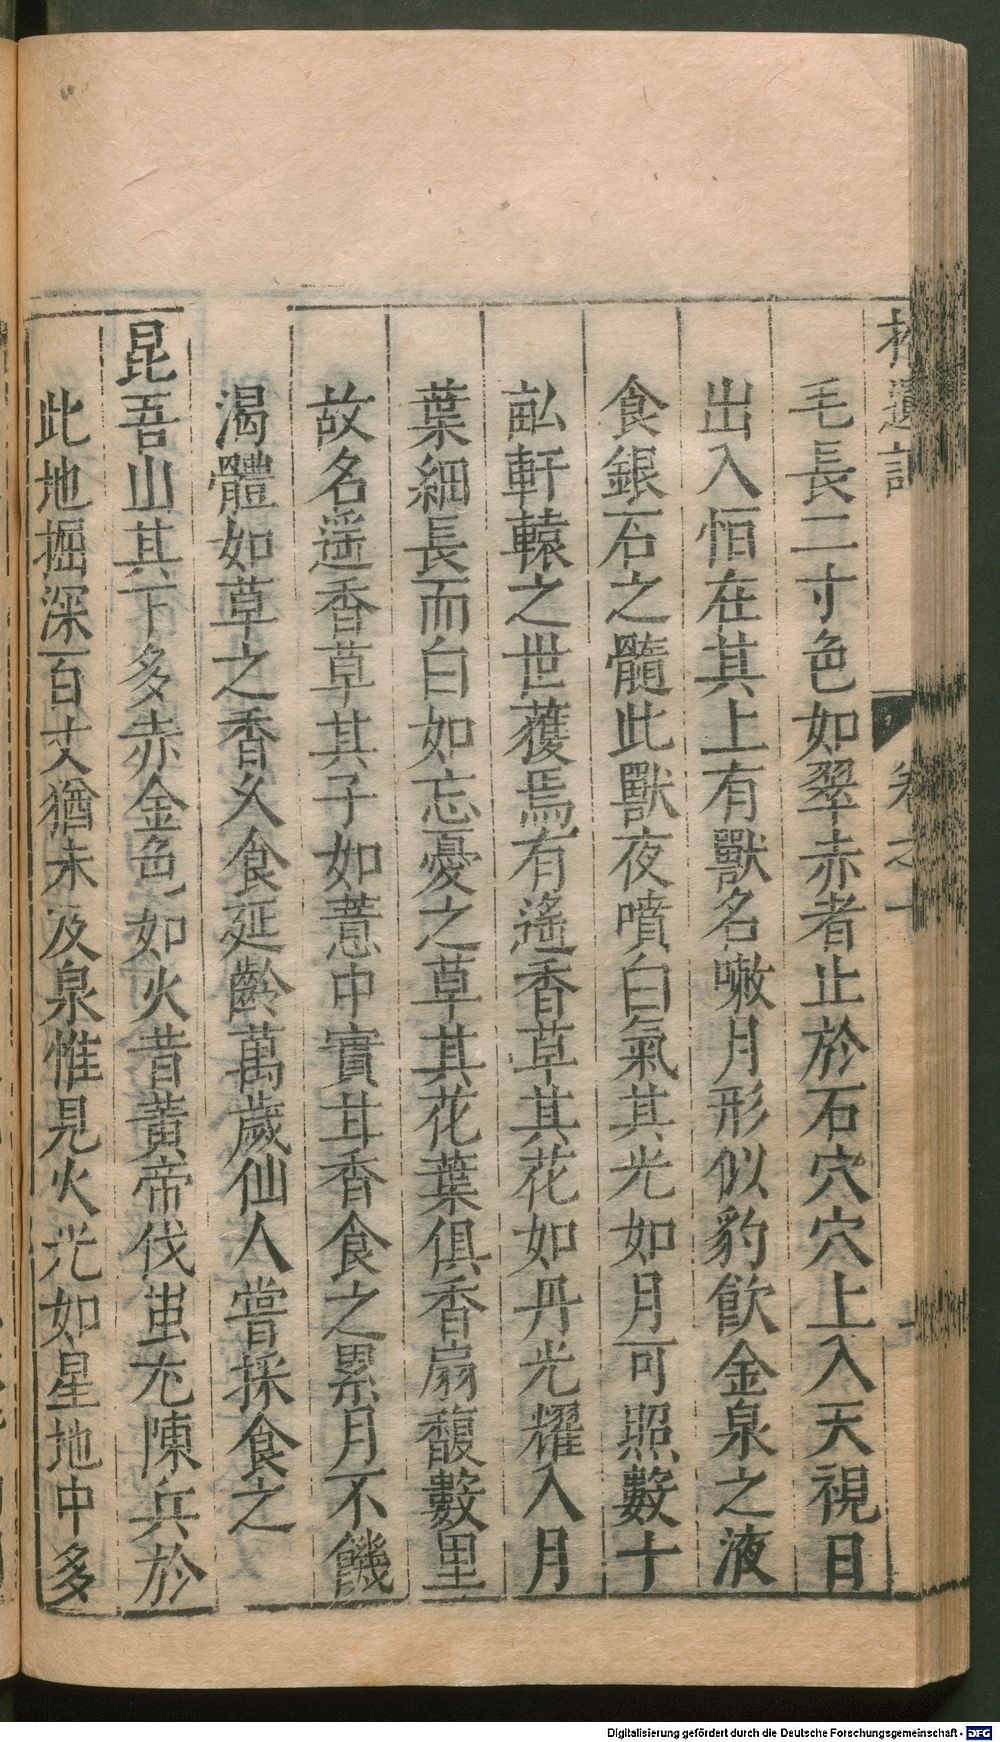 拾遺記 卷之十
毛長二寸色如翠赤者止於石穴穴上入天視日
出入恒在其上有獸名嗽月形似豹飲金泉之液
食銀石之髓此獸夜噴白氣其光如月可照數十
畝軒轅之世獲焉有遙香草其花如丹光耀入月
葉細長而白如忘憂之草其花葉俱香扇馥數里
故名遥香草其子如薏中實甘香食之累月不饑
渴體如草之香久食延齡萬歲仙人嘗採食之
昆吾山其下多赤金色如火昔黄帝伐蚩尤陳兵於
此地掘深百丈猶未及泉惟見火光如星地中多
Digitalisierung gefördert durch die Deutsche Forschungsgemeinschaft - DFG